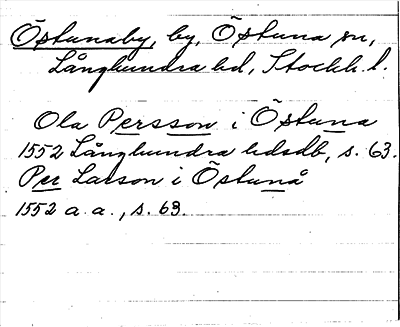 Östunaby, by, Östuna sn,
Långhundra hd, Stockh. l.
Ola Persson i Östuna
1552 Långhundra hdsdb, s. 63.
Per Larson i Östunå
1552 a. a., s. 63.